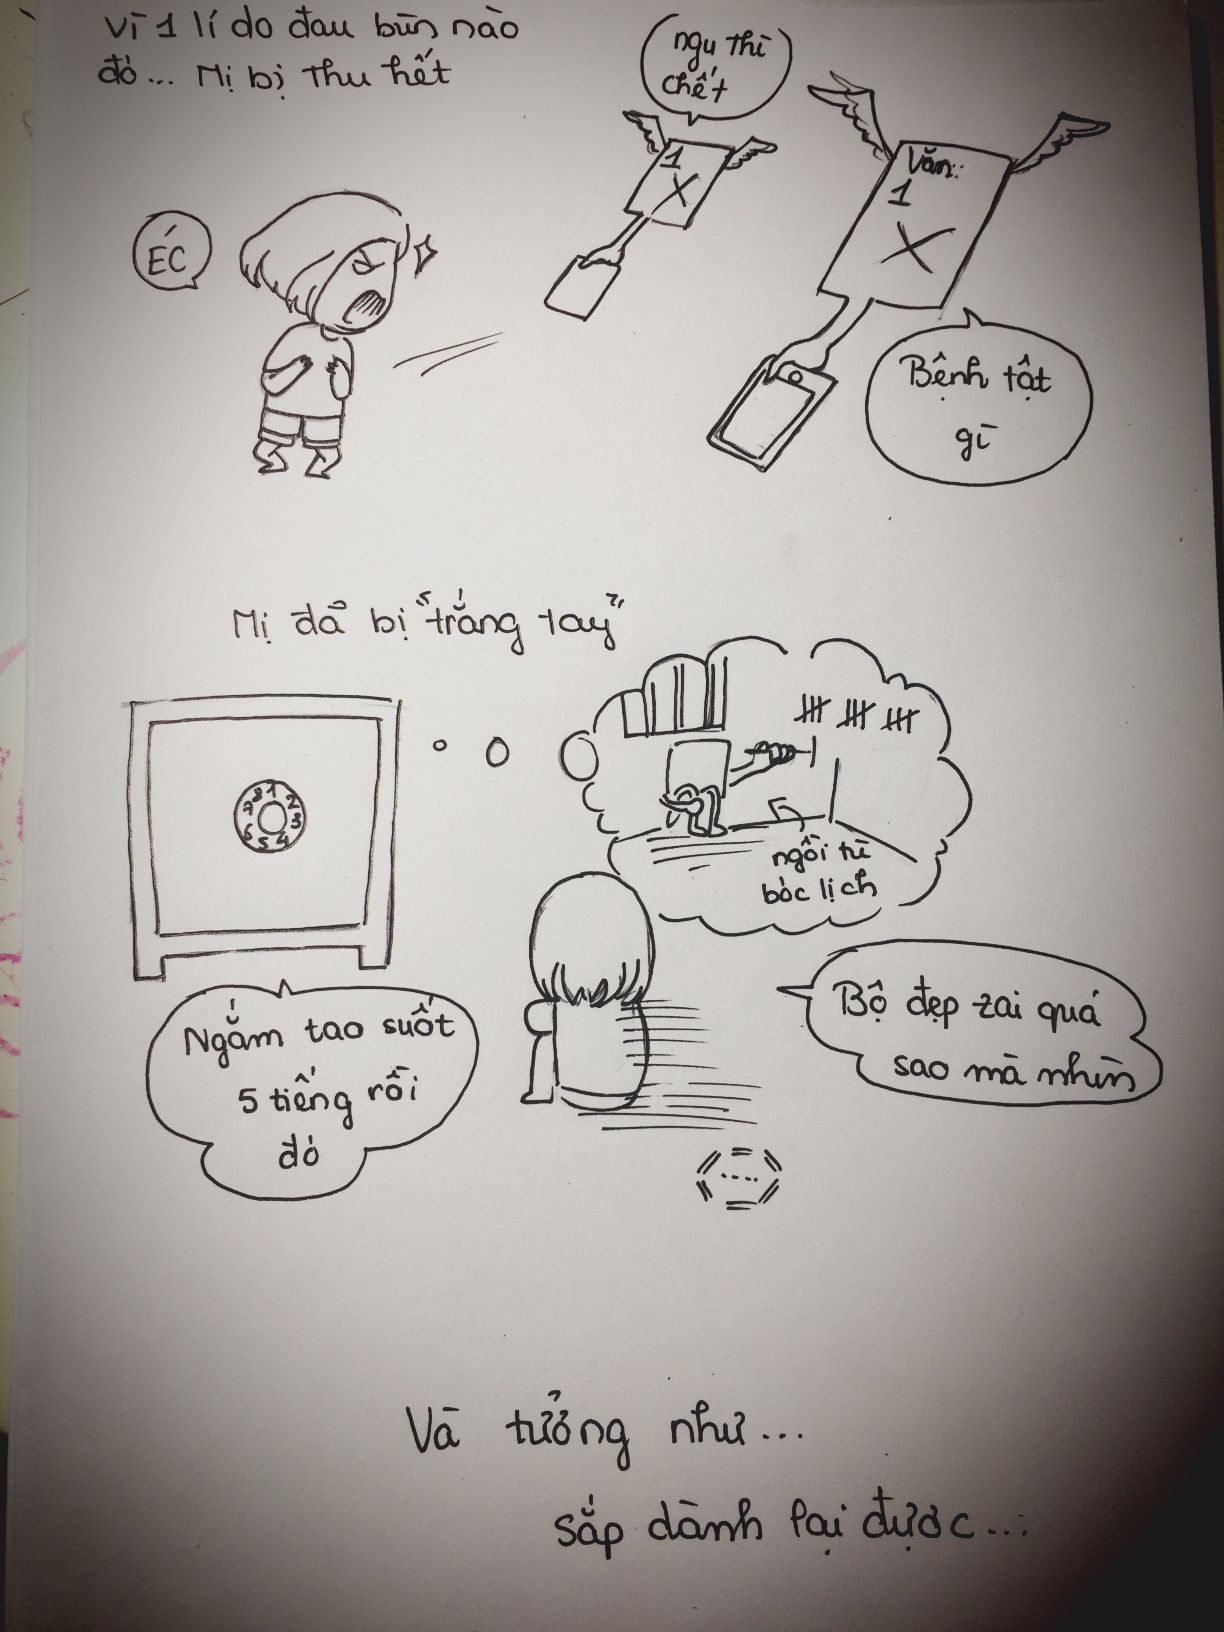 Vì 1 lí do đau bùn nào
đó... Mị bị thu hết
ngu thì
chết
1
X
Văn:
1
X
ÉC
Bệnh tật
gì
Mị đã bị "trắng tay"
1
2
3
4
5
6
7
8
ngồi tù
bóc lịch
Ngắm tao suốt
5 tiếng rồi
đó
Bộ đẹp zai quá
sao mà nhìn
....
Và tưởng như...
sắp dành lại được...